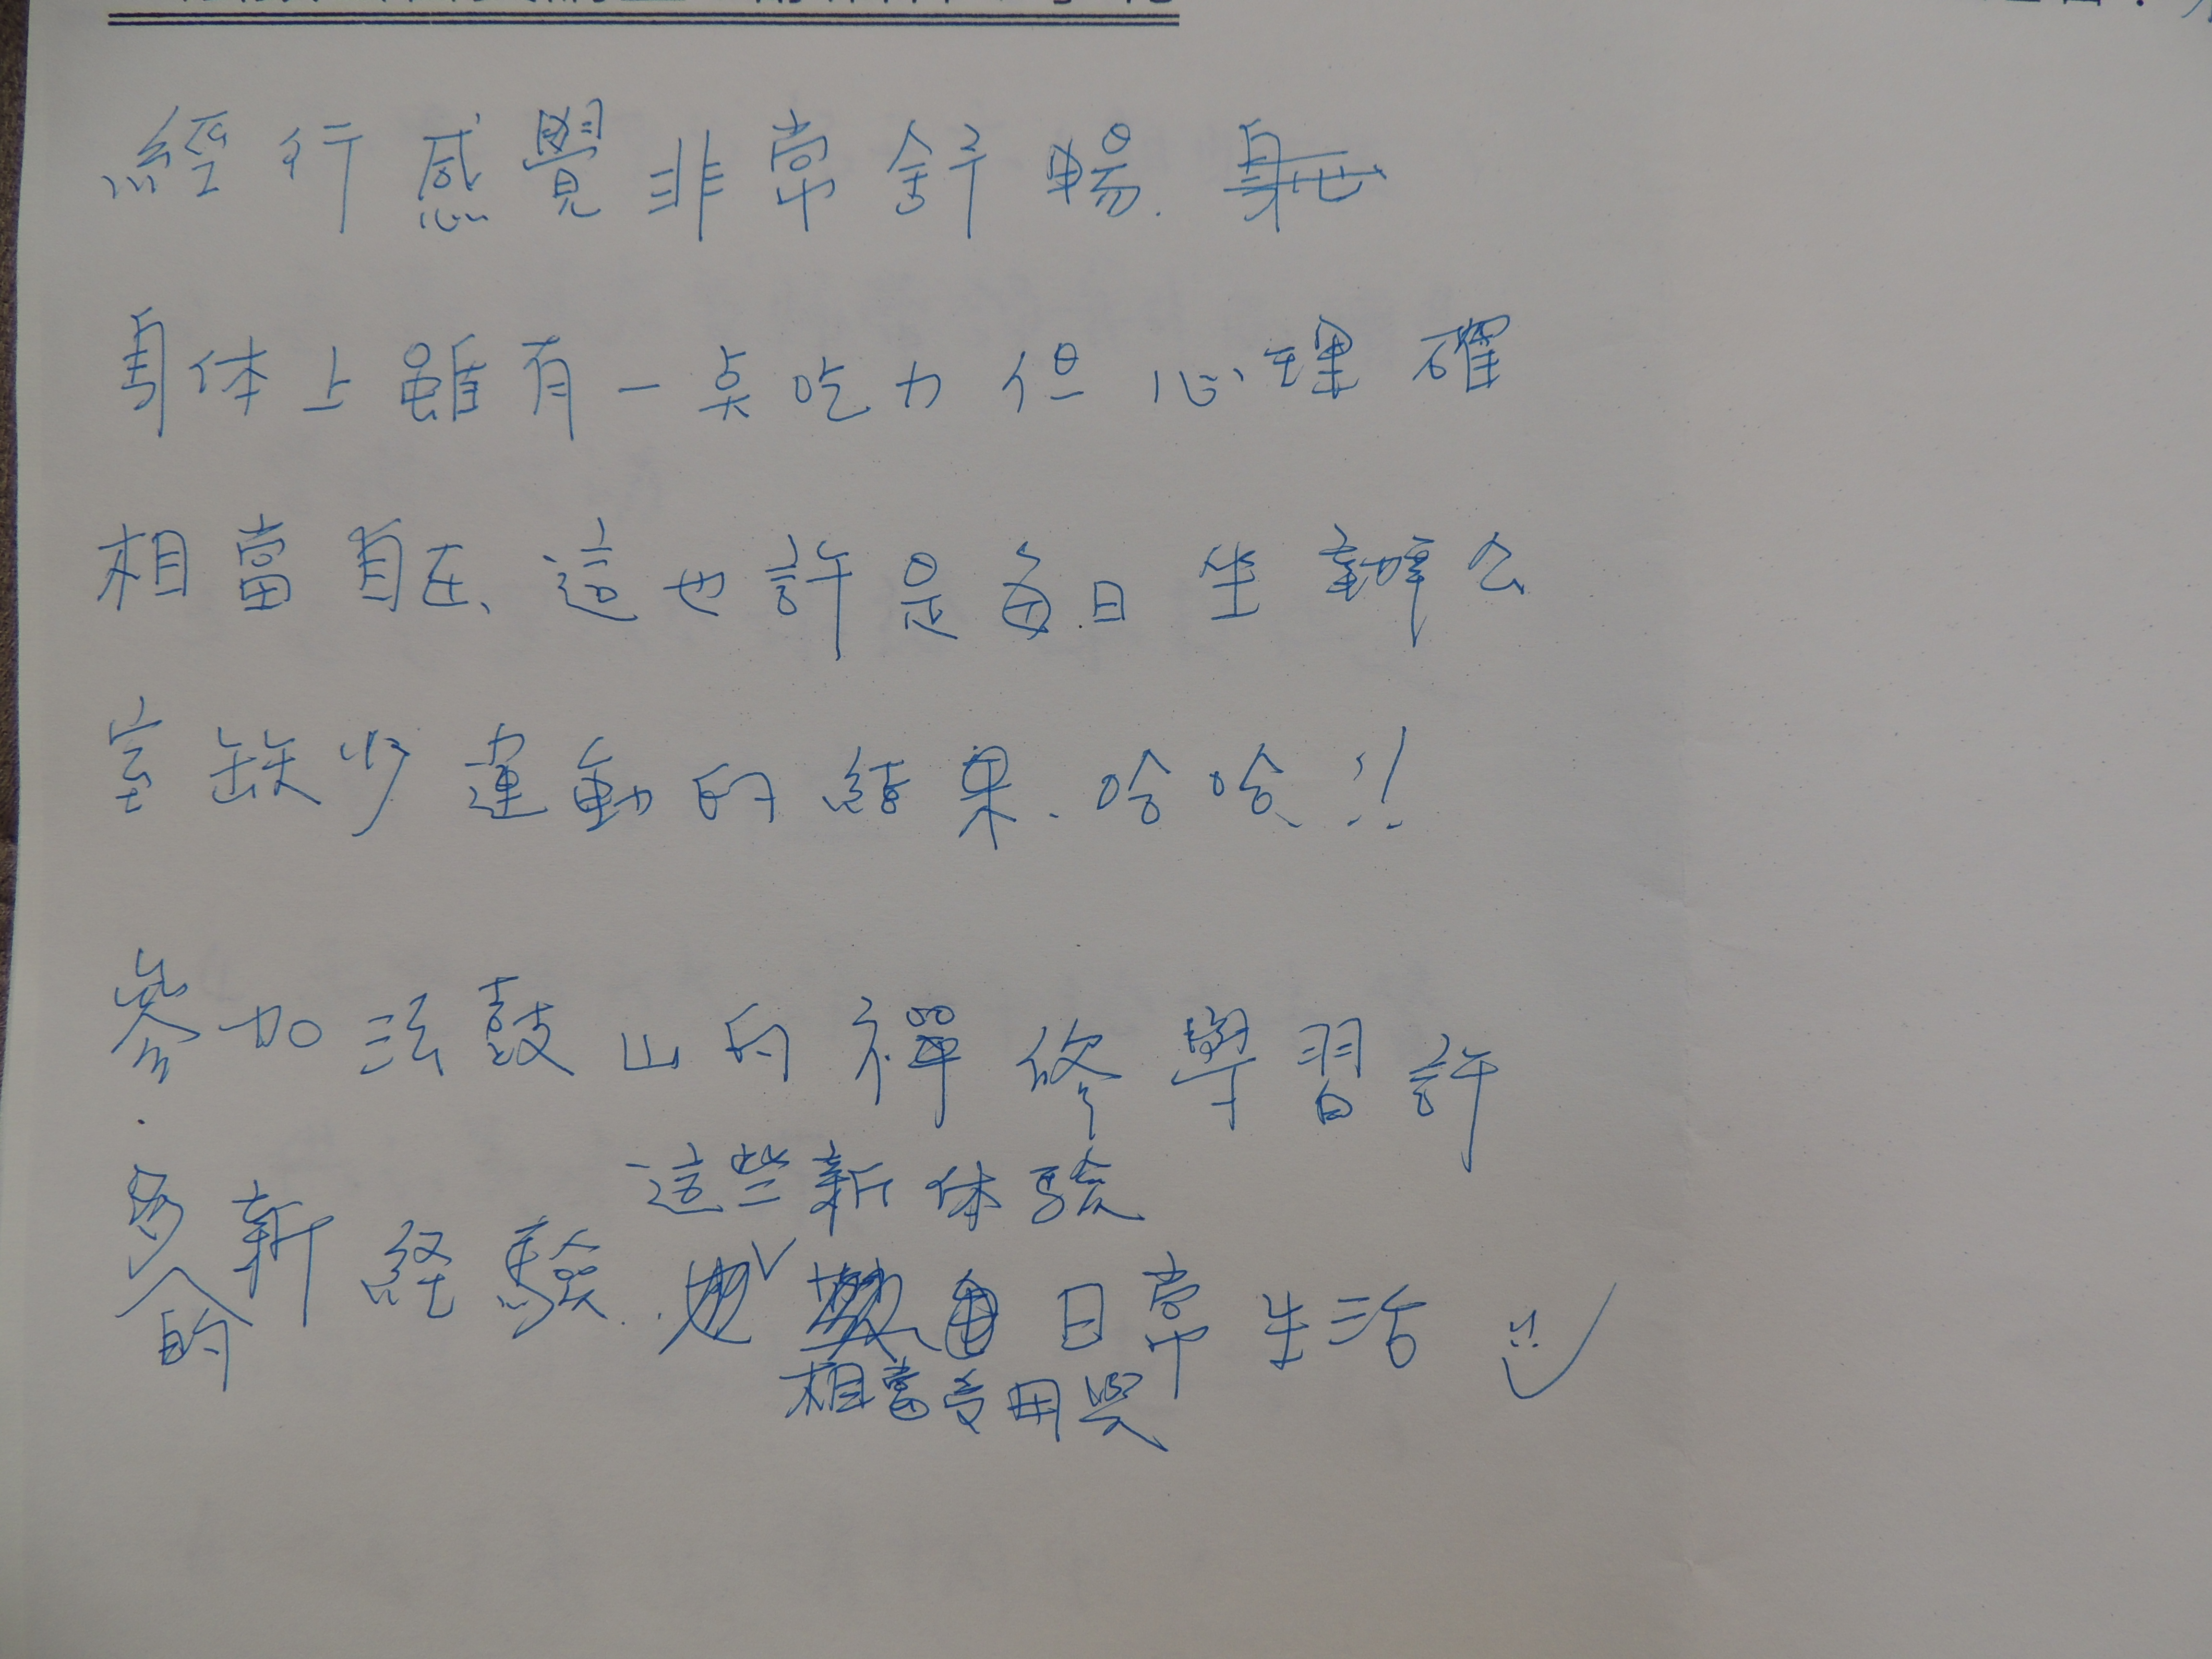 經行感覺非常舒暢.
身体上雖有一点吃力但心理確
相當自在、這也許是每日坐辦公
室缺少運動的結果.哈哈!!
參加法鼓山的禪修學習許
多的新経驗.
這些新体验
日常生活
相當受用哭